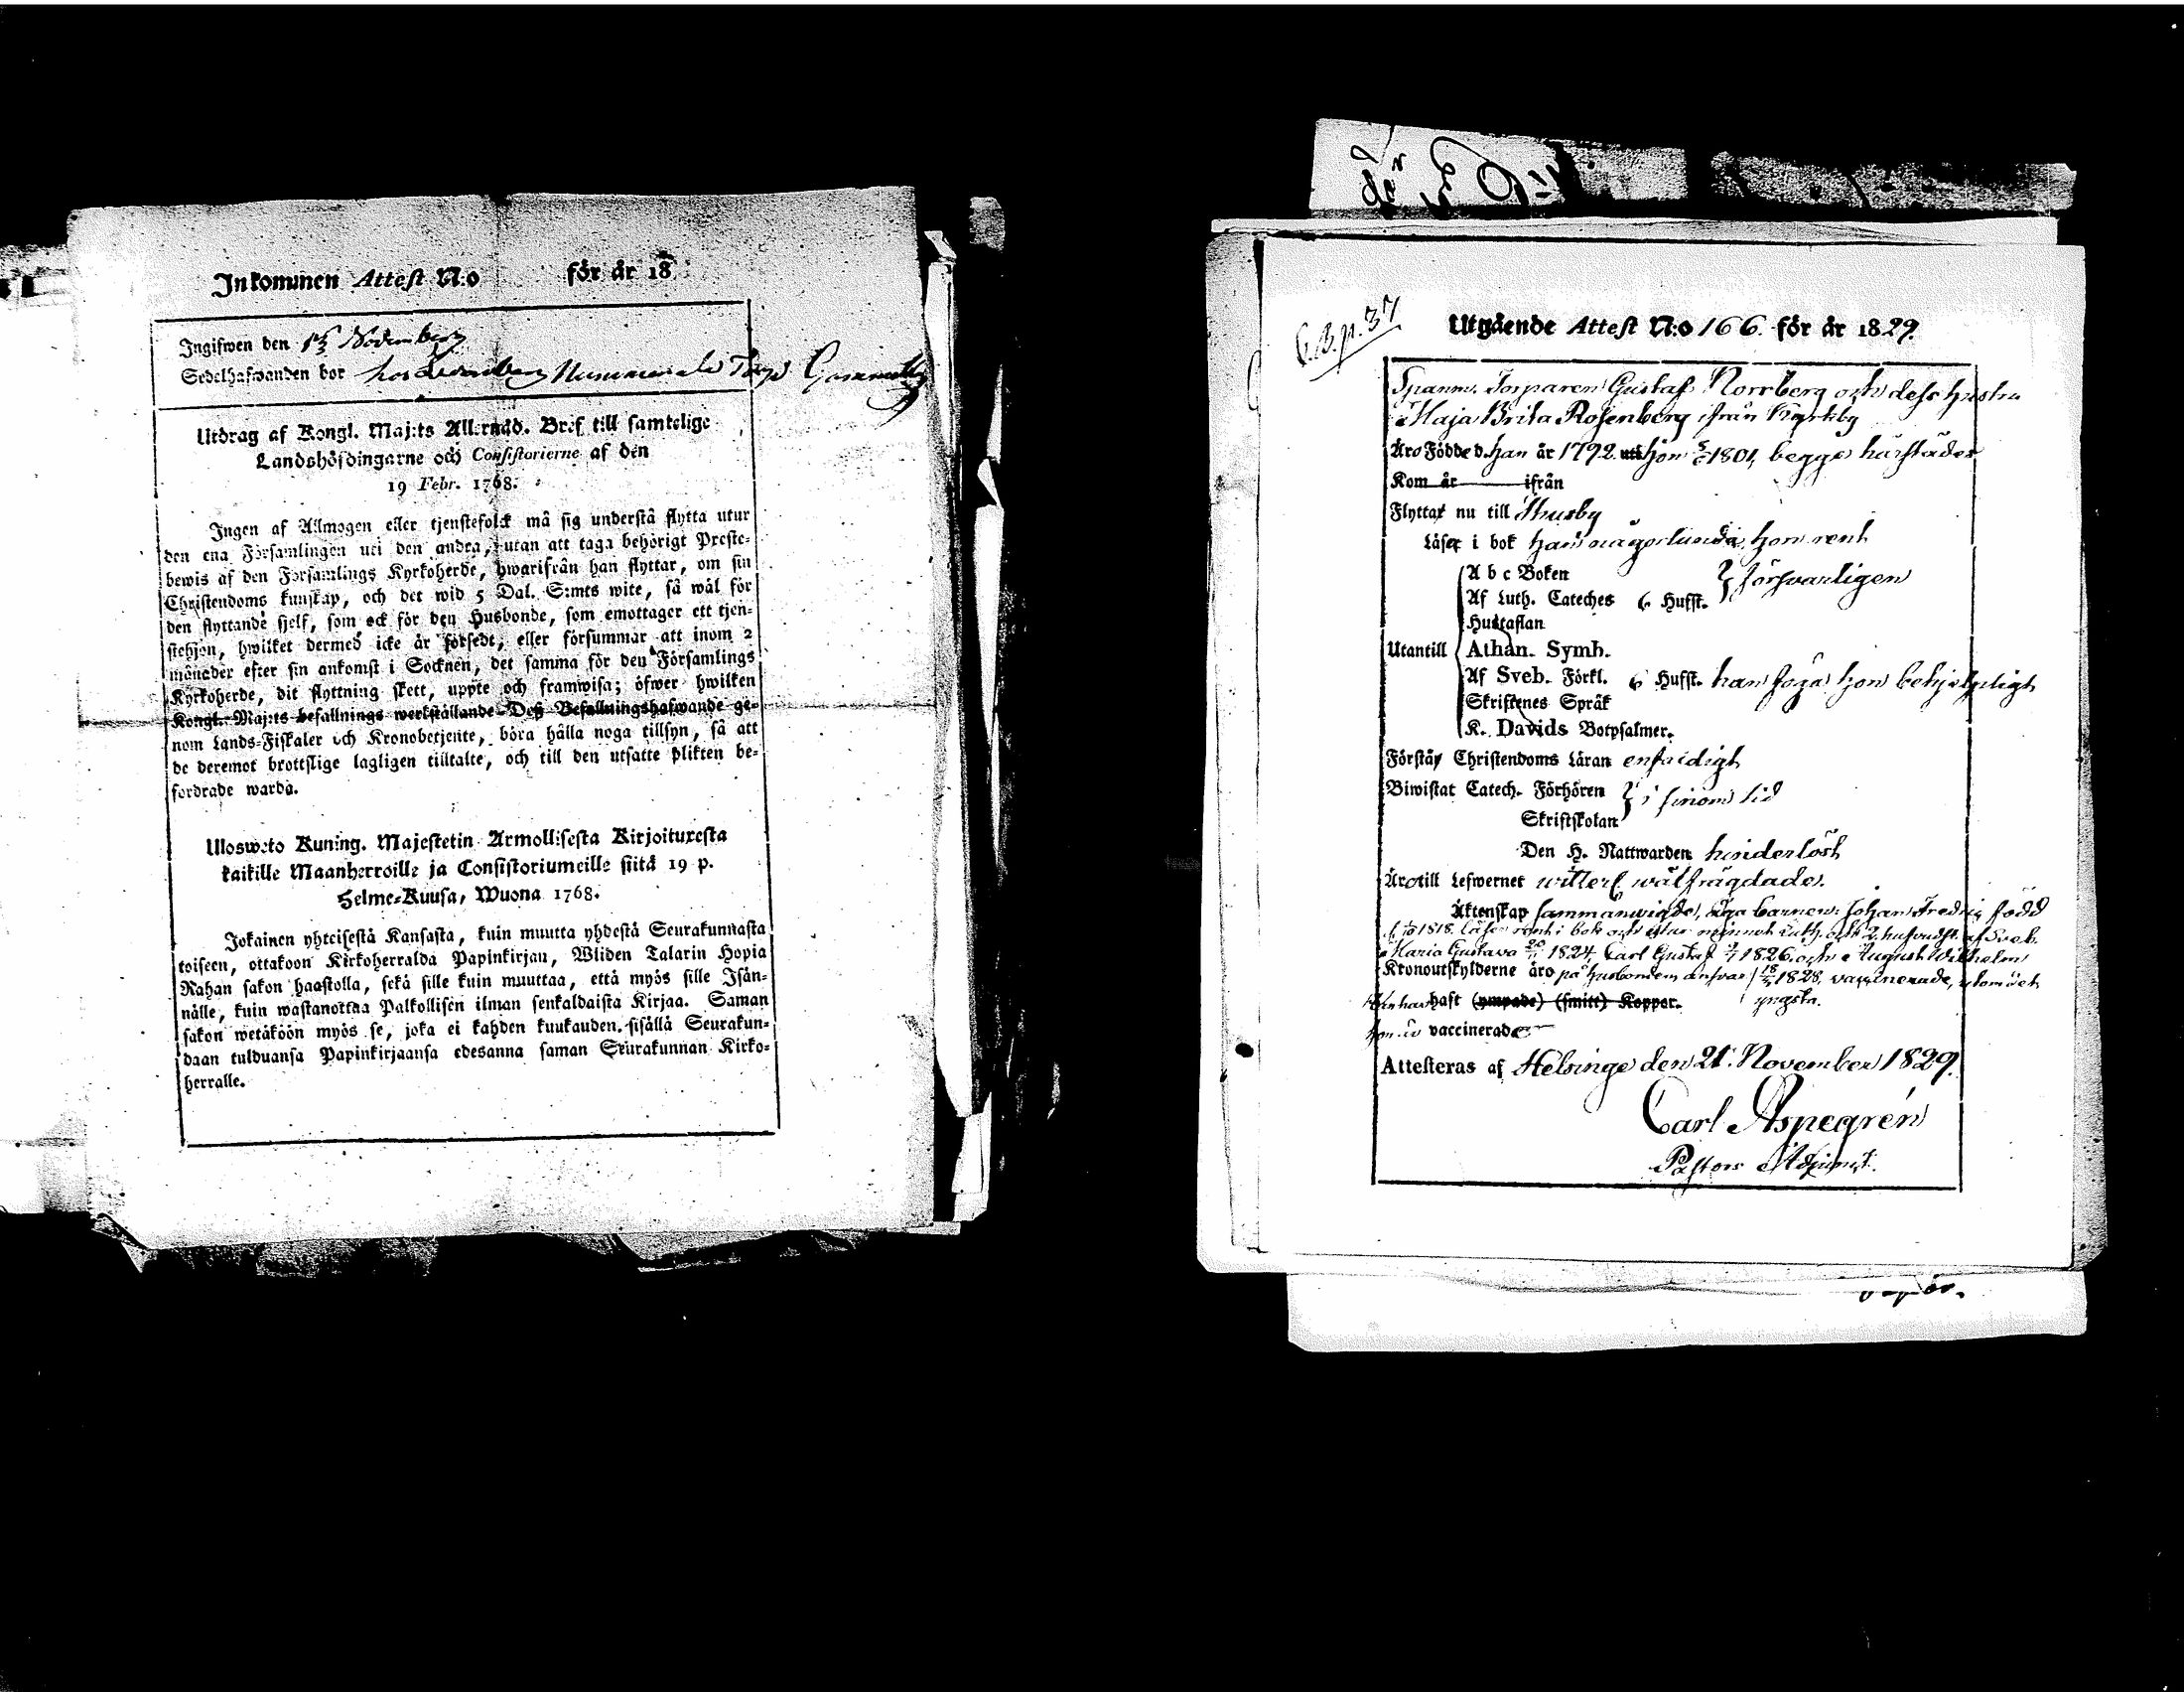 Inkommen Attest N:o för år 18
Ingifwen den November
Sedelhafwanden bor hos
Utdrag af Kongl. Maj:ts Allernåd. Bref till samtelige
Landshöfdingarne och Consistorierne af den
19 Febr. 1768.
Ingen af Allmogen eller tjenstefolck må sig understå flytta utur
den ena Församlingen uti den andra, utan att taga behörigt Preste-
bewis af den Församlings Kyrkoherde, hwarifrån han flyttar, om sin
Christendoms kunskap, och det wid 5 Dal. S:mts wite, så wål för
den flyttande sjelf, som ock för den Husbonde, som emottager ett tjen-
stehjon, hwilket dermed icke är försedt, eller försummar att inom 2
månader efter sin ankomst i Socknen, det samma för den Församlings
Kyrkoherde, dit flyttning skett, uppte och framwisa; öfwer hwilken
Kongl. Maj:ts befallnings werkställande Deß Befallningshafwande ge-
nom Lands-Fiskaler och Kronobetjente, böra hålla noga tillsyn, så att
de deremot brottslige lagligen tilltalte, och till den utsatte plikten be-
fordrade warda.
Ulosweto Kuning. Majestetin Armollisesta Kirjoituxesta
kaikille Maanherroille ja Consistoriumeille siitä 19 p.
Helme-Kuusa, Wuona 1768.
Jokainen yhteisestä Kansasta, kuin muutta yhdestä Seurakunnasta
toiseen, ottakoon Kirkoherralda Papinkirjan, Wliden Talarin Hopia
Rahan sakon haastolla, sekä sille kuin muuttaa, että myös sille Isän-
nälle, kuin wastanottaa Palkollisen ilman senkaldaista Kirjaa. Saman
sakon wetäköön myös se, joka ei kahden kuukauden sisällä Seurakun-
daan tulduansa Papinkirjaansa edesanna saman Seurakunnan Kirko-
herralle.
C.B.p. 37
Utgående Attest N:o 166. för år 1829.
Gustaf Norrberg och dess hustru
Maja Brita Rosenberg ifrån Kyrkby
Äro Födde d. han år 1792 hon 1801, begge härstädes
Kom år ifrån
Flyttar nu till Thusby
Läser i bok han någorlunda, hon rent
A b c Boken
försvarligen
Af Luth. Cateches 6 Hufst.
Hustaflan
Utantill Athan. Symb.
Af Sveb. Förkl. 6 Hufst. han föga hon behjelpligt
Skriftenes Språk
K. Davids Botpsalmer.
Förstår Christendoms Läran enfaldigt
Biwistat Catech. Förhören i sinom tid
Skriftskolan
Den H. Nattwarden hinderlöst
Äro till Lefwernet witterl. wälfrägdade.
Äktenskap sammanwigde, äga barnen: Johan Fredric född
1818, läser rent i bok och utur minnet Luth. och 2 hufvudst. af Sveb.
Maria Gustava 20/11 1824, Carl Gustaf 1826, och August Wilhelm
Kronoutskylderne äro på husbondens ansvar / 18 1828, vaccinerade, utom det
yngsta.
han har haft (ympade) (smitt) Koppor.
hon är vaccinerade
Attesteras af Helsinge den 21 November 1829.
Carl Aspegrén
Pastors Adjunct.